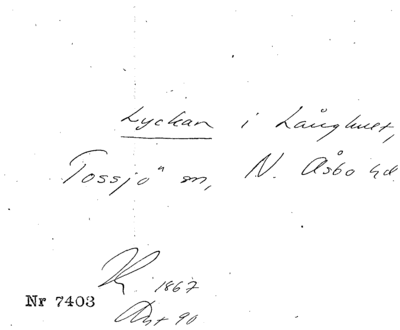 Lyckan i Långhult,
Tossjö sn, N. Åsbo hd.
K. 1867
Nr 7403